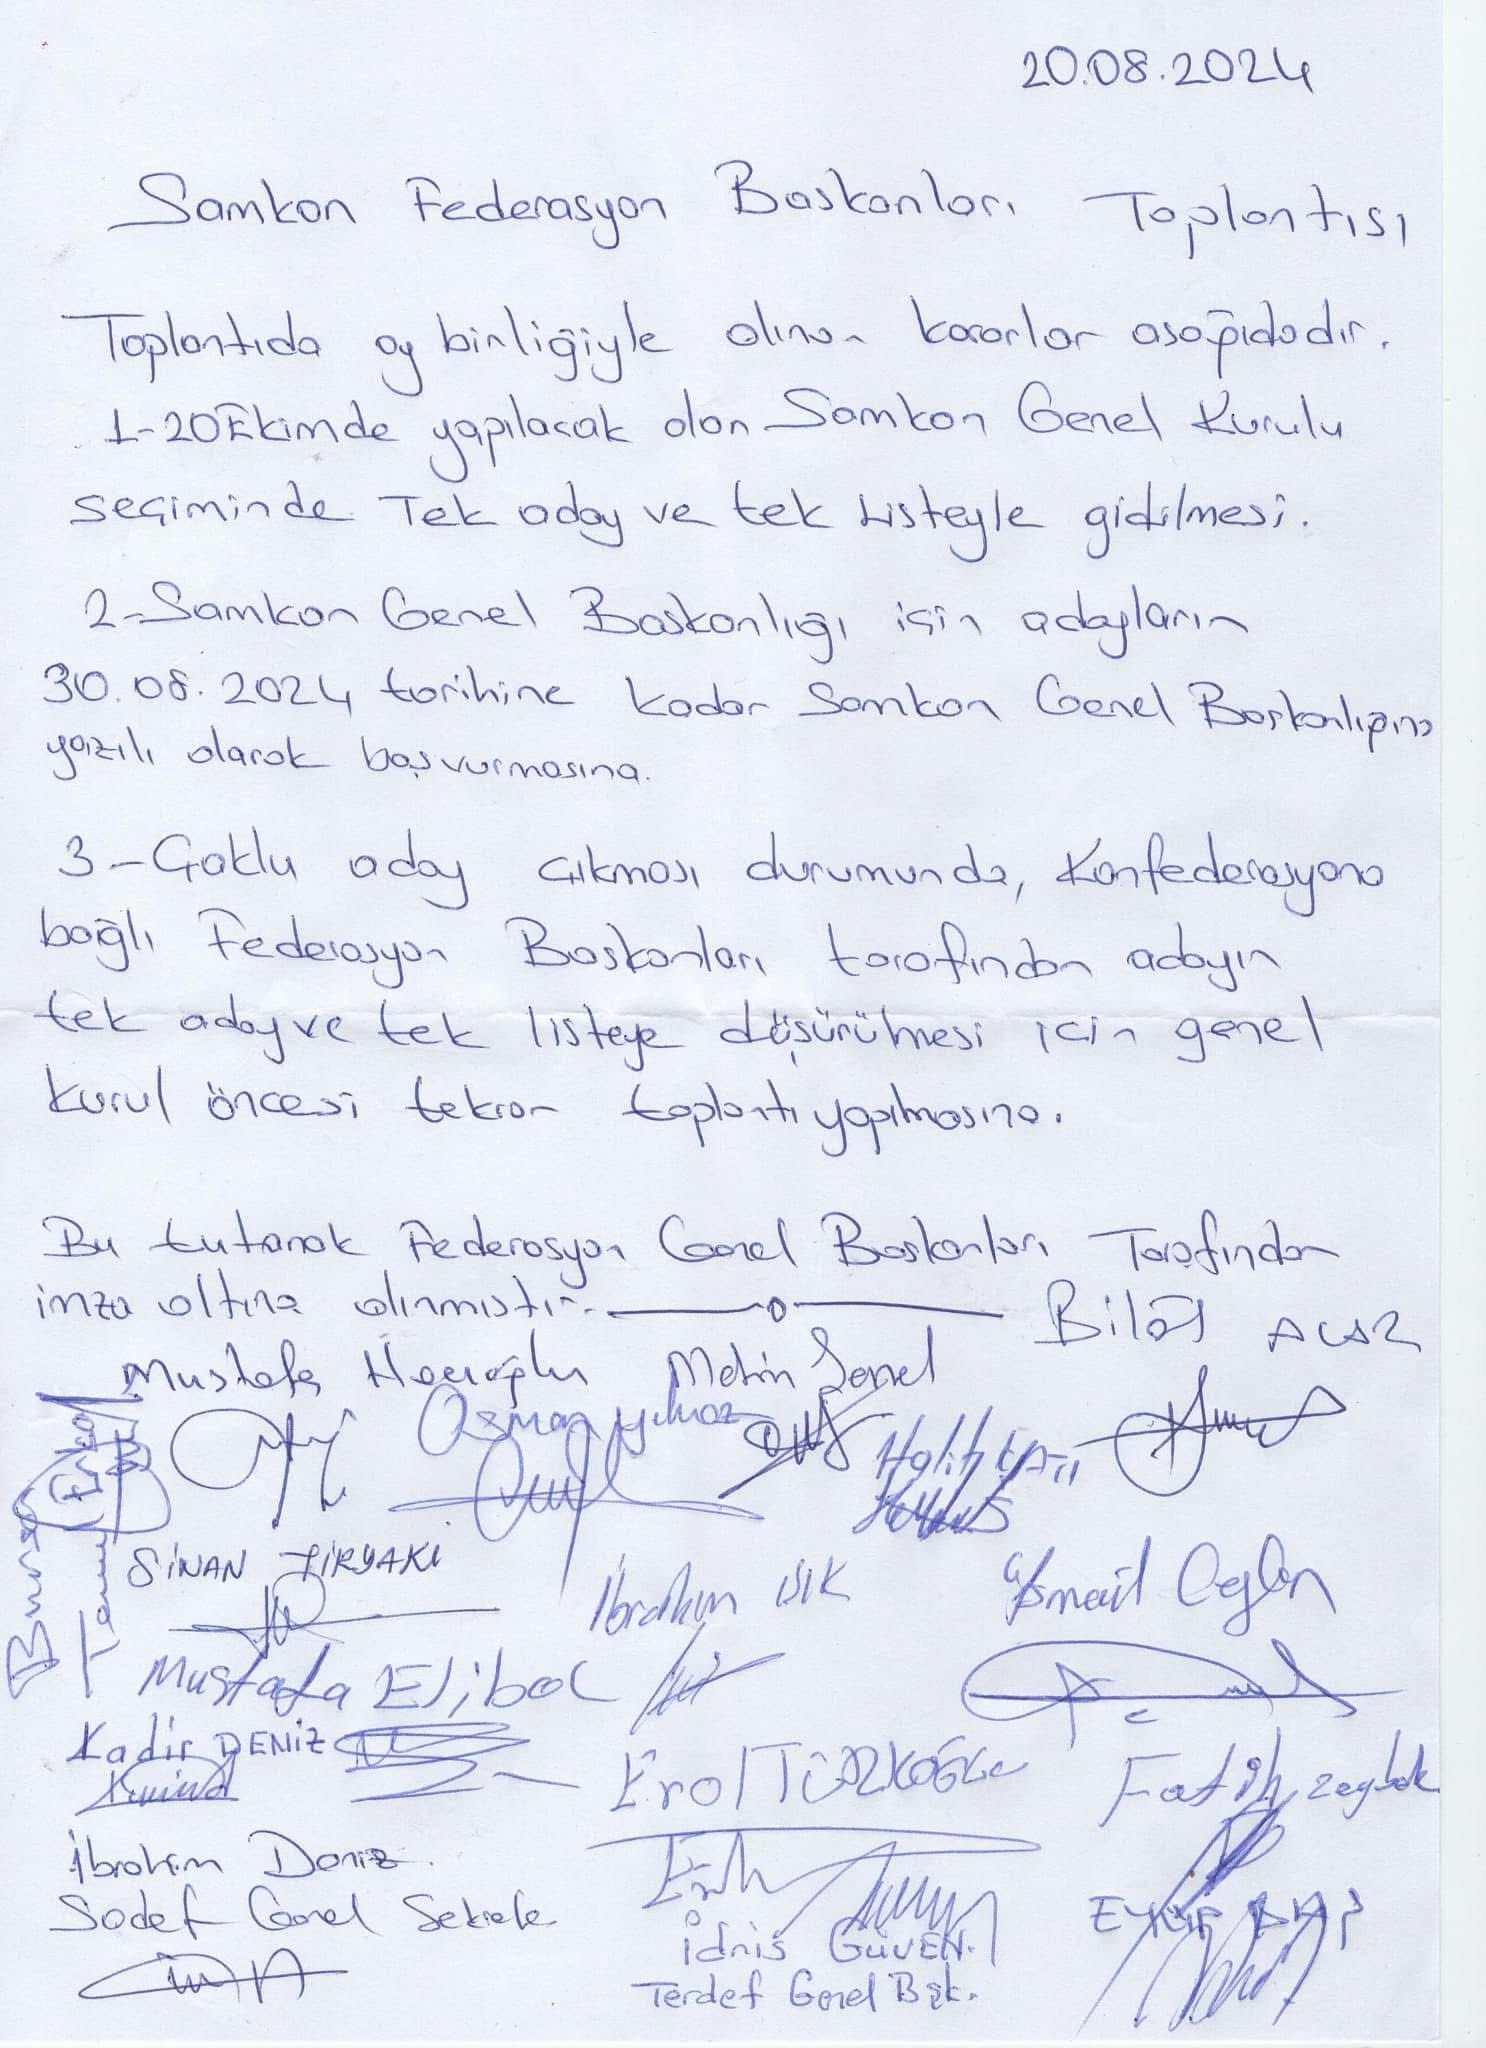 20.08.2024
Samkon Federasyon Baskanları Toplantısı
Toplantıda oy birliğiyle alınan kararlar asağıdadır.
1-20 Ekimde yapılacak olan Samkon Genel Kurulu
seçiminde Tek aday ve tek Listeyle gidilmesi.
2-Samkon Genel Baskanlığı için adayların
30.08.2024 tarihine kadar Samkon Genel Baskanlığına
yazılı olarak başvurmasına.
3-Çoklu aday çıkması durumunda, Konfederasyona
bağlı Federasyon Baskanları tarafından adayın
tek aday ve tek listeye düşürülmesi için genel
kurul öncesi tekrar toplantı yapılmasına.
Bu tutanak Federasyon Genel Baskanları Tarafından
imza altına alınmıştır.
Bilâl ACAR
Mustafa Hacıoğlu Metin Şenel
Osman yılmaz
Halit
SİNAN TİRYAKİ
İbrahim ışık
İsmail Ceylan
Mustafa Elibol
Kadir DENİZ
Erol TÜRKOĞLU
Fatih zeybek
İbrahim Deniz
Sadef Genel Sekrete
EYÜP
İdris GÜVEN.
Terdef Genel Bşk.